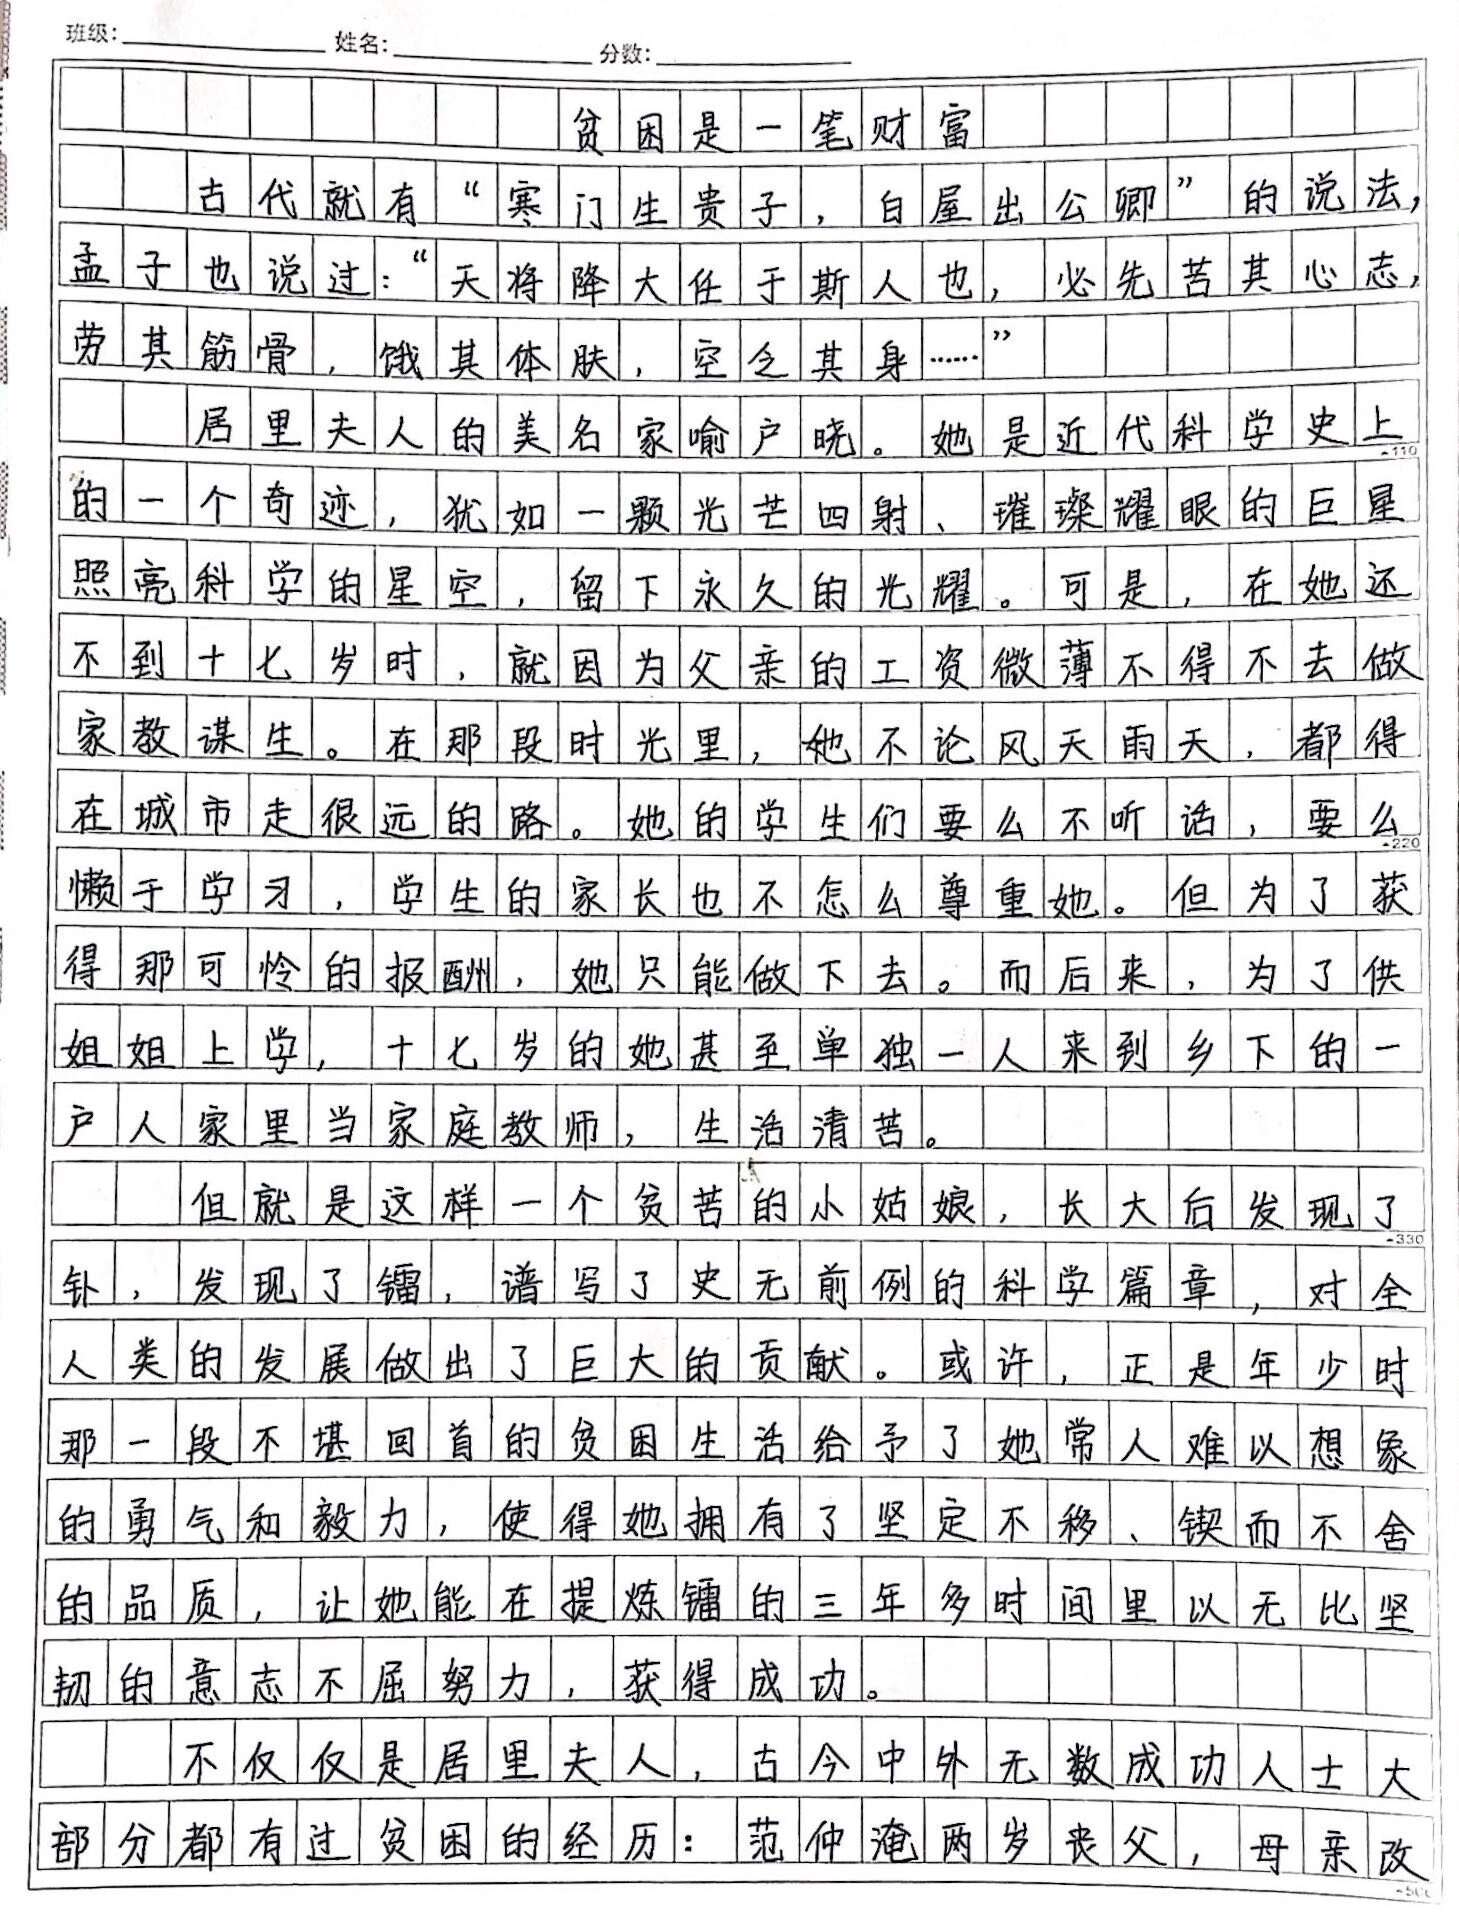 班级： 姓名： 分数：
贫困是一笔财富
古代就有“寒门生贵子，白屋出公卿”的说法，
孟子也说过：“天将降大任于斯人也，必先苦其心志，
劳其筋骨，饿其体肤，空乏其身……”
居里夫人的美名家喻户晓。她是近代科学史上
110
的一个奇迹，犹如一颗光芒四射、璀璨耀眼的巨星
照亮科学的星空，留下永久的光耀。可是，在她还
不到十七岁时，就因为父亲的工资微薄不得不去做
家教谋生。在那段时光里，她不论风天雨天，都得
在城市走很远的路。她的学生们要么不听话，要么
220
懒于学习，学生的家长也不怎么尊重她。但为了获
得那可怜的报酬，她只能做下去。而后来，为了供
姐姐上学，十七岁的她甚至单独一人来到乡下的一
户人家里当家庭教师，生活清苦。
但就是这样一个贫苦的小姑娘，长大后发现了
330
钋，发现了镭，谱写了史无前例的科学篇章，对全
人类的发展做出了巨大的贡献。或许，正是年少时
那一段不堪回首的贫困生活给予了她常人难以想象
的勇气和毅力，使得她拥有了坚定不移、锲而不舍
的品质，让她能在提炼镭的三年多时间里以无比坚
韧的意志不屈努力，获得成功。
不仅仅是居里夫人，古今中外无数成功人士大
部分都有过贫困的经历：范仲淹两岁丧父，母亲改